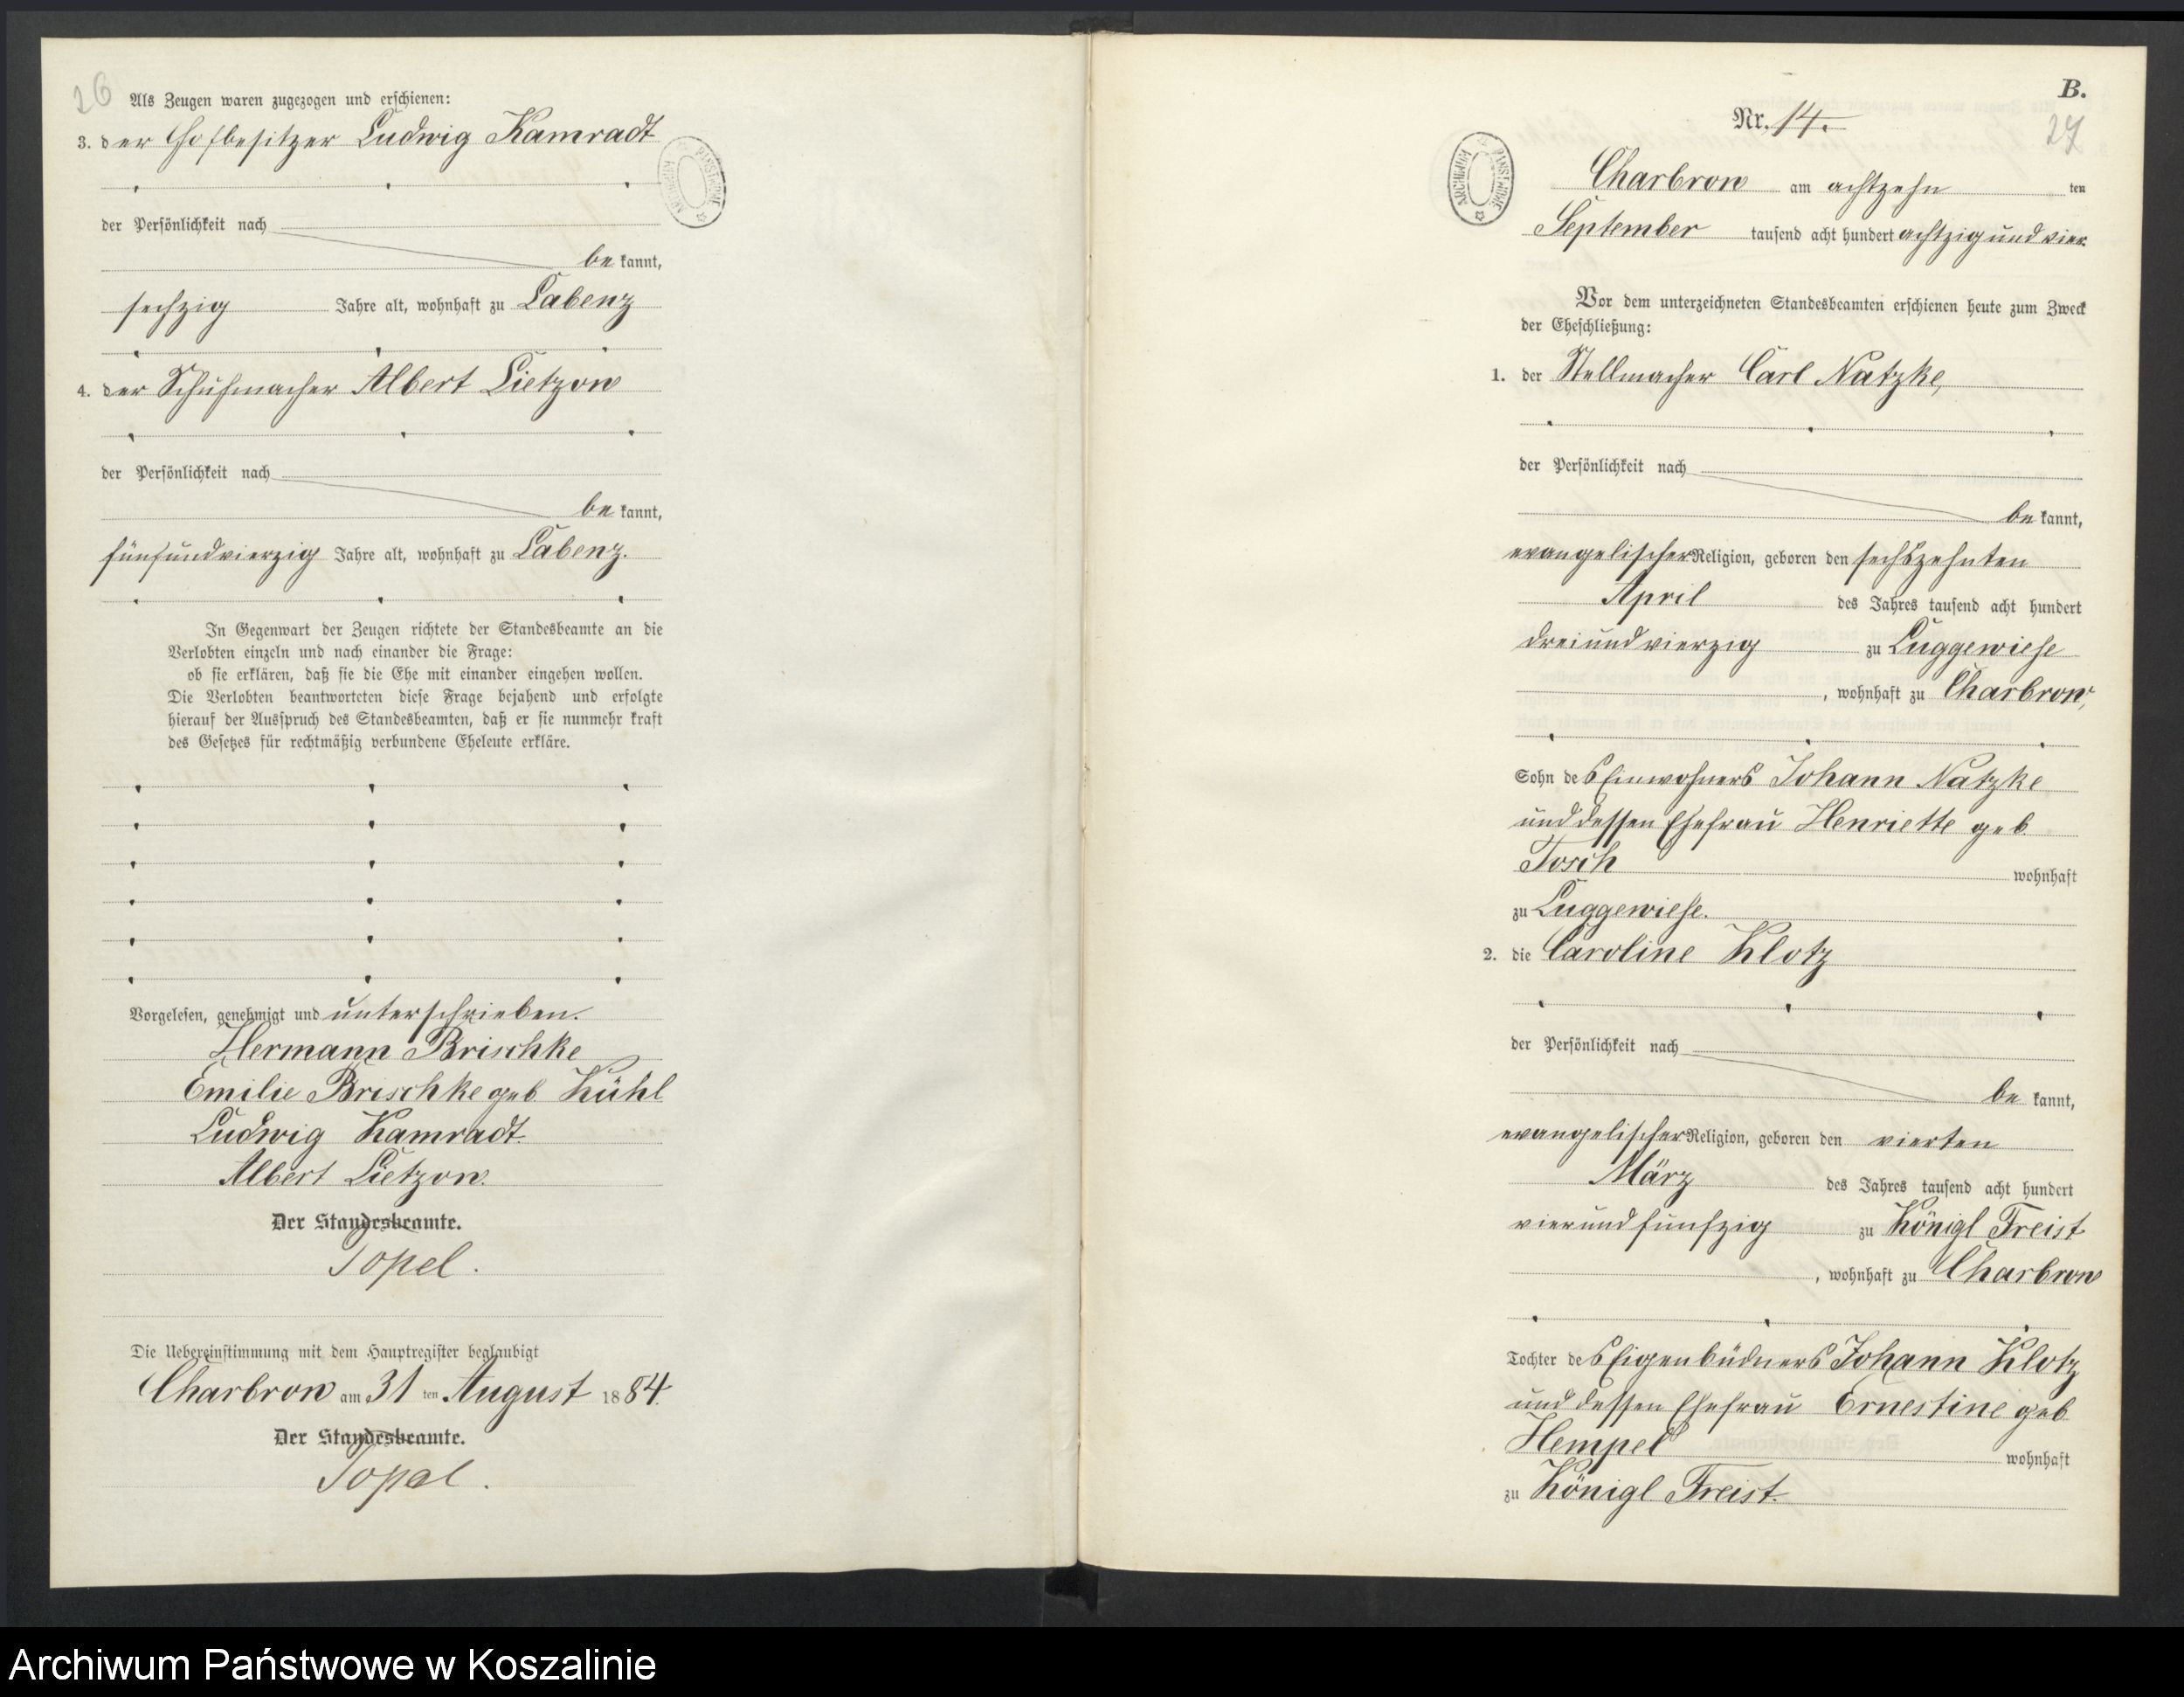 26
Als Zeugen waren zugezogen und erschienen:
3. der Hofbesitzer Ludwig Kamradt
der Persönlichkeit nach
be kannt,
sechzig Jahre alt, wohnhaft zu Labenz
4. der Schuhmacher Albert Lietzow
der Persönlichkeit nach
be kannt,
fünfundvierzig Jahre alt, wohnhaft zu Labenz.
In Gegenwart der Zeugen richtete der Standesbeamte an die
Verlobten einzeln und nach einander die Frage:
ob sie erklären, daß sie die Ehe mit einander eingehen wollen.
Die Verlobten beantworteten diese Frage bejahend und erfolgte
hierauf der Ausspruch des Standesbeamten, daß er sie nunmehr kraft
des Gesetzes für rechtmäßig verbundene Eheleute erkläre.
Vorgelesen, genehmigt und unterschrieben.
Hermann Brischke
Emilie Brischke geb. Kühl
Ludwig Kamradt.
Albert Lietzow.
Der Standesbeamte.
Topel.
Die Uebereinstimmung mit dem Hauptregister beglaubigt
Charbrow am 31 ten August 1884.
Der Standesbeamte.
Topel.
ARCHIWUM PAŃSTWOWE
B.
Nr. 14.
27
ARCHIWUM PAŃSTWOWE
Charbrow am achtzehn ten
September tausend acht hundert achtzig und vier.
Vor dem unterzeichneten Standesbeamten erschienen heute zum Zweck
der Eheschließung:
1. der Stellmacher Carl Natzke,
der Persönlichkeit nach
be kannt,
evangelischer Religion, geboren den sechszehnten
April des Jahres tausend acht hundert
dreiundvierzig zu Luggewiese
, wohnhaft zu Charbrow,
Sohn des Einwohners Johann Natzke
und dessen Ehefrau Henriette geb.
Tosch wohnhaft
zu Luggewiese.
2. die Caroline Klotz
der Persönlichkeit nach
be kannt,
evangelischer Religion, geboren den vierten
März des Jahres tausend acht hundert
vierundfünfzig zu Königl Freist
, wohnhaft zu Charbrow
Tochter des Eigenbüdners Johann Klotz
und dessen Ehefrau Ernestine geb
Hempel wohnhaft
zu Königl Freist.
Archiwum Państwowe w Koszalinie